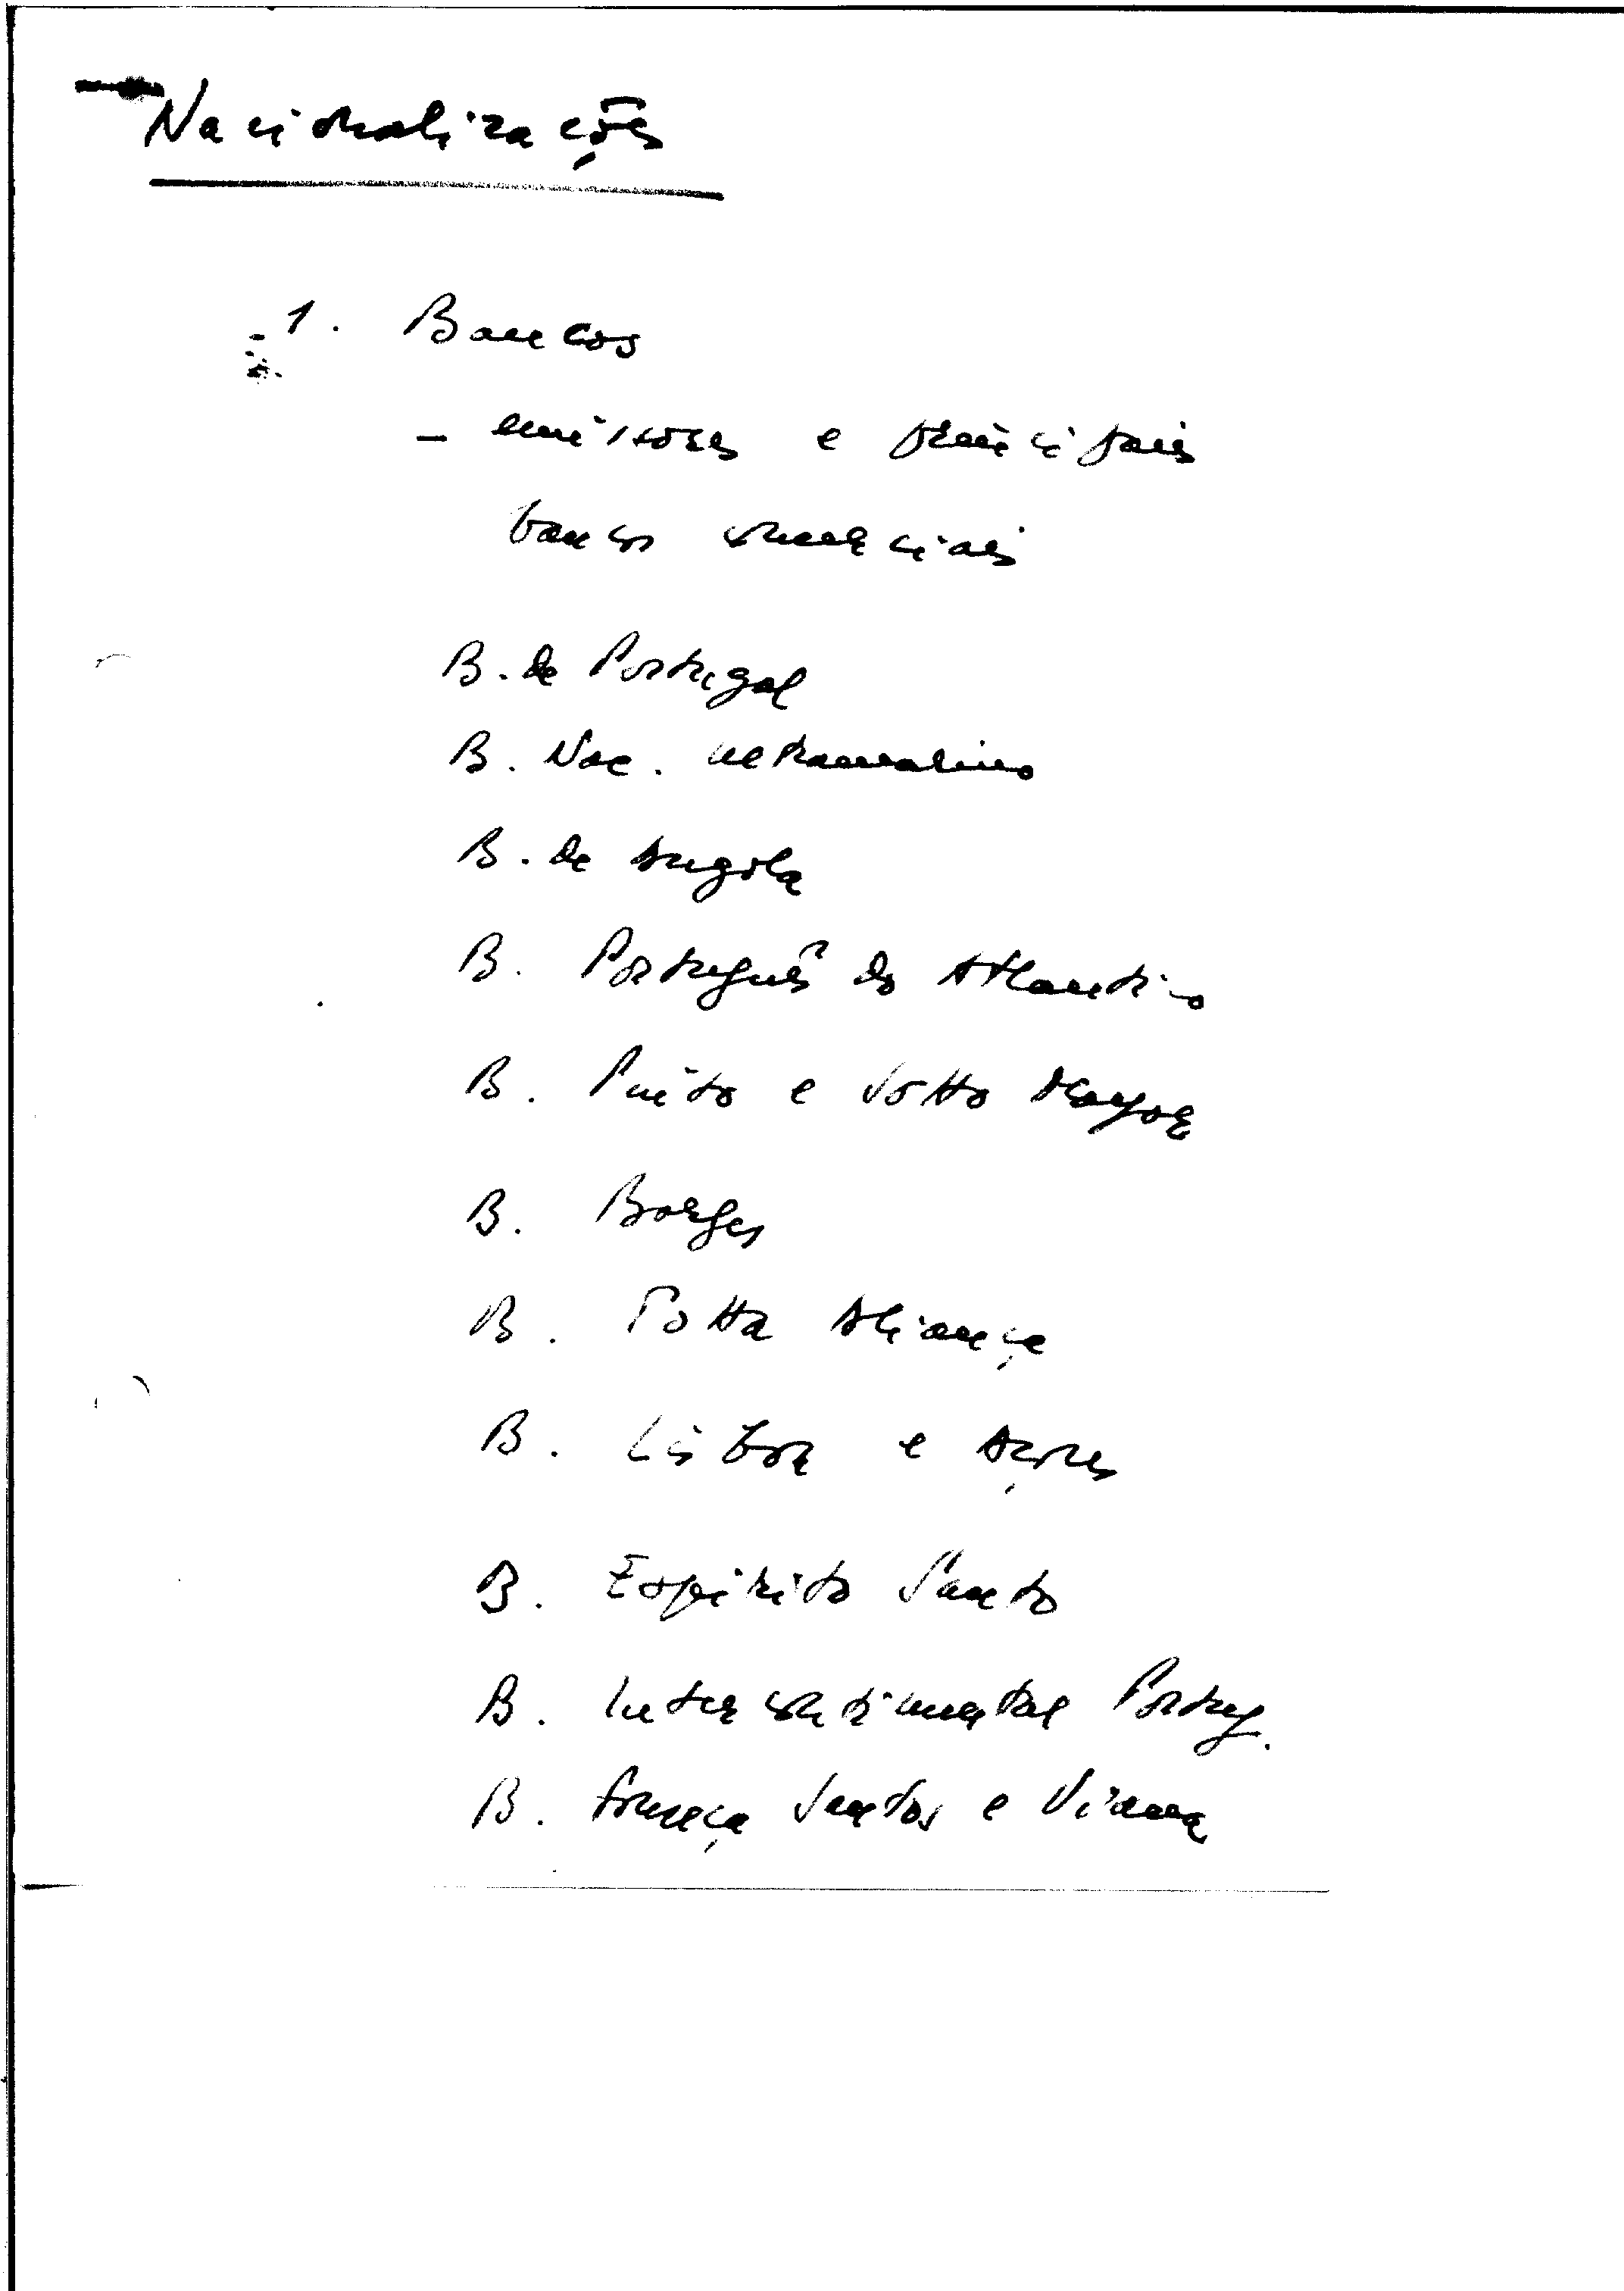 Nacionalizações
1. Bancos
- emissores e principais
bancos comerciais
B. de Portugal
B. Nac. Ultramarino
B. de Angola
B. Português do Atlantico
B. Pinto e Sotto Mayor
B. Borges
B. Totta Aliança
B. Lisboa e Açores
B. Espirito Santo
B. Intercontinental Portug.
B. Fonseca Santos e Viana